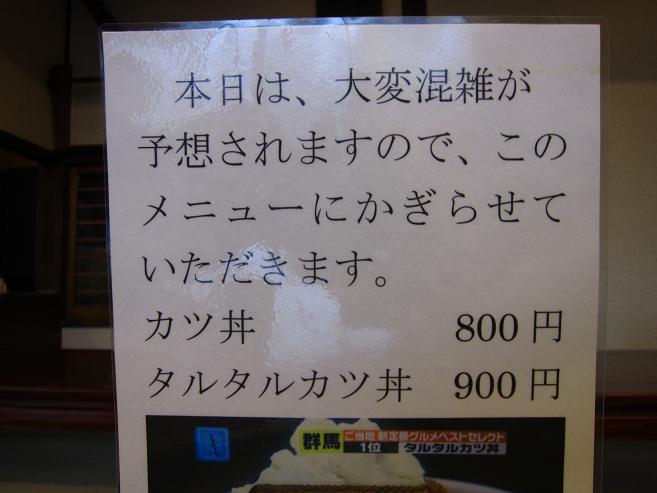 本日は、大変混雑が
予想されますので、この
メニューにかぎらせて
いただきます。
カツ丼 800円
タルタルカツ丼 900円
群馬 ご当地 新定番グルメベストセレクト
1位 タルタルカツ丼